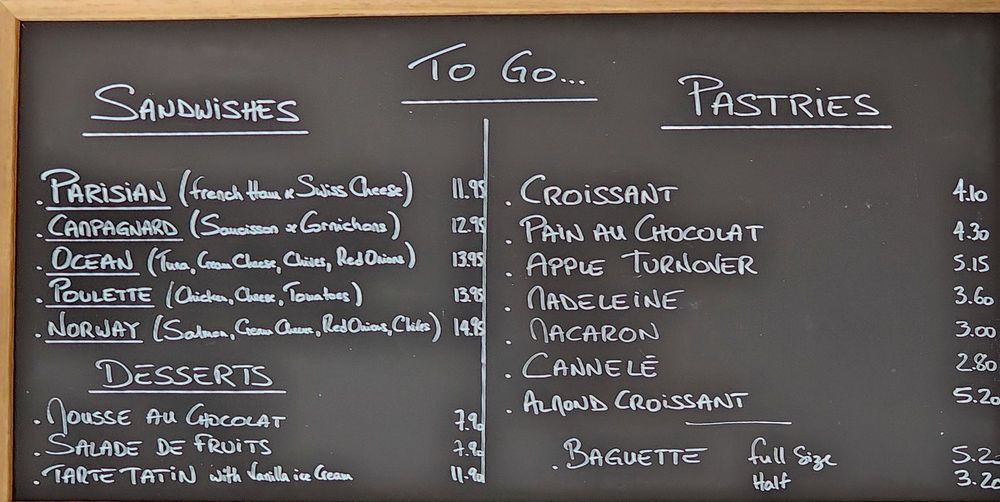 To Go...
SANDWISHES
. PARISIAN (French Ham & Swiss Cheese) 11.95
. CAMPAGNARD (Saucisson & Cornichons) 12.95
. OCEAN (Tuna, Cream Cheese, Chives, Red Onions) 13.95
. POULETTE (Chicken, Cheese, Tomatoes) 13.95
. NORWAY (Salmon, Cream Cheese, Red Onions, Chives) 14.95
DESSERTS
. MOUSSE AU CHOCOLAT 7.90
. SALADE DE FRUITS 7.90
. TARTE TATIN with Vanilla ice Cream 11.90
PASTRIES
. CROISSANT 4.10
. PAIN AU CHOCOLAT 4.30
. APPLE TURNOVER 5.15
. MADELEINE 3.60
. MACARON 3.00
. CANNELÉ 2.80
. ALMOND CROISSANT 5.20
. BAGUETTE Full Size 5.2
Half 3.20